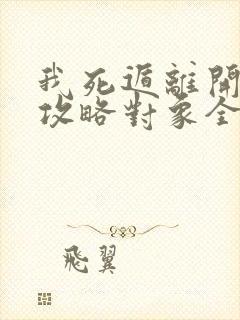 我死遁離開
攻略對象全
飛翼